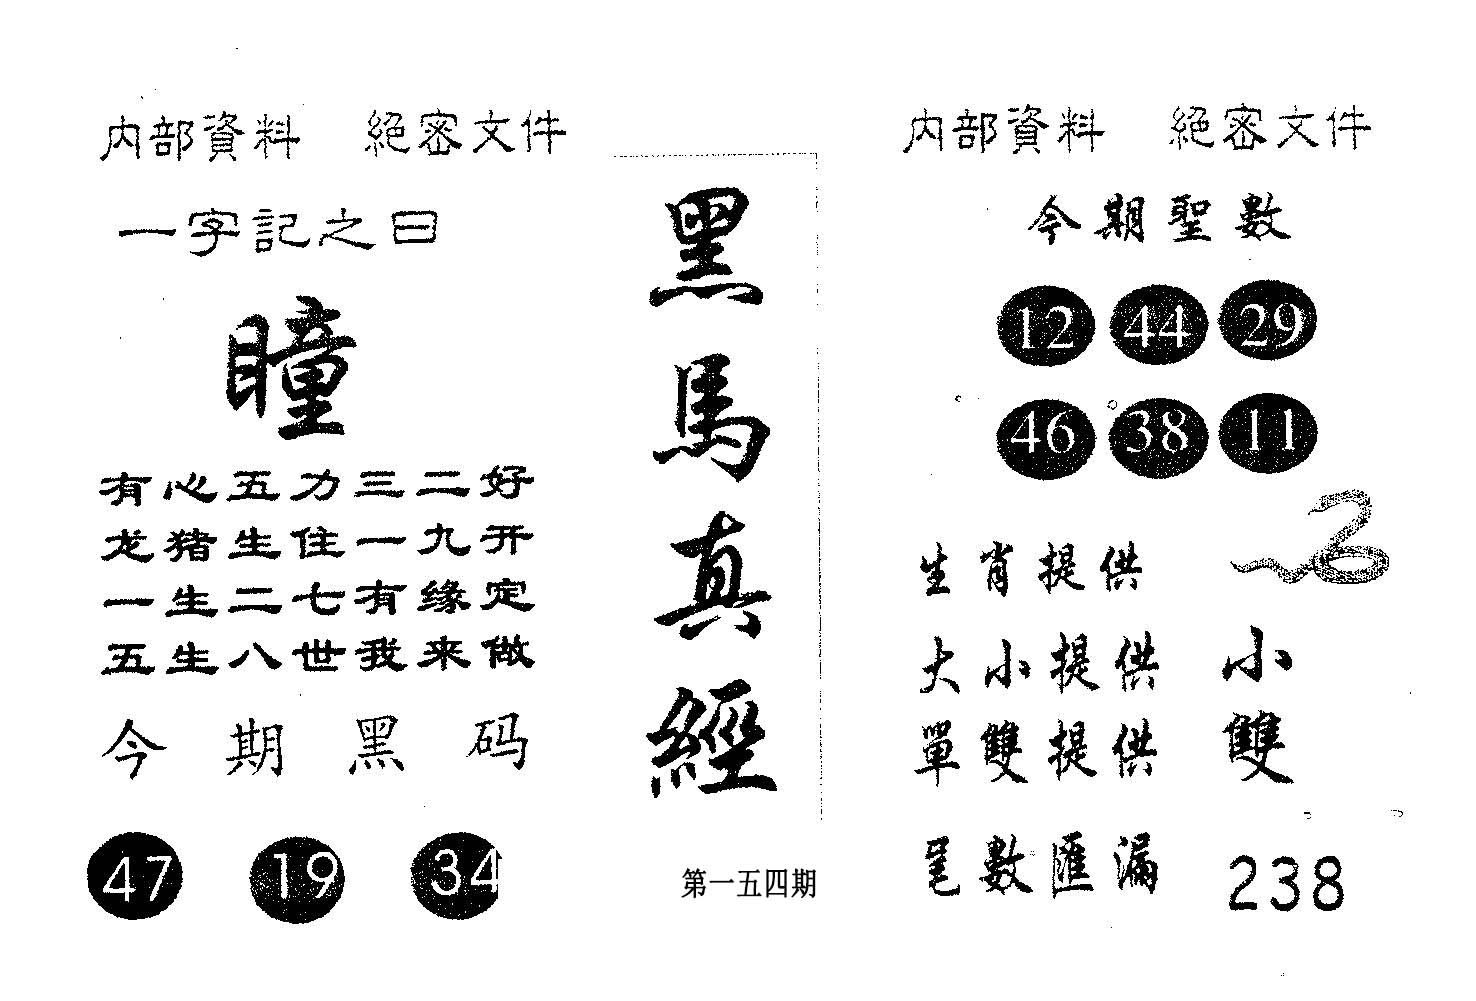 内部資料 絕密文件
一字記之曰
瞳
有心五力三二好
龙猪生住一九开
一生二七有缘定
五生八世我来做
今期黑码
47 19 34
黑馬真經
第一五四期
内部資料 絕密文件
今期聖數
12 44 29
46 38 11
生肖提供
大小提供 小
單雙提供 雙
尾數匯漏 238